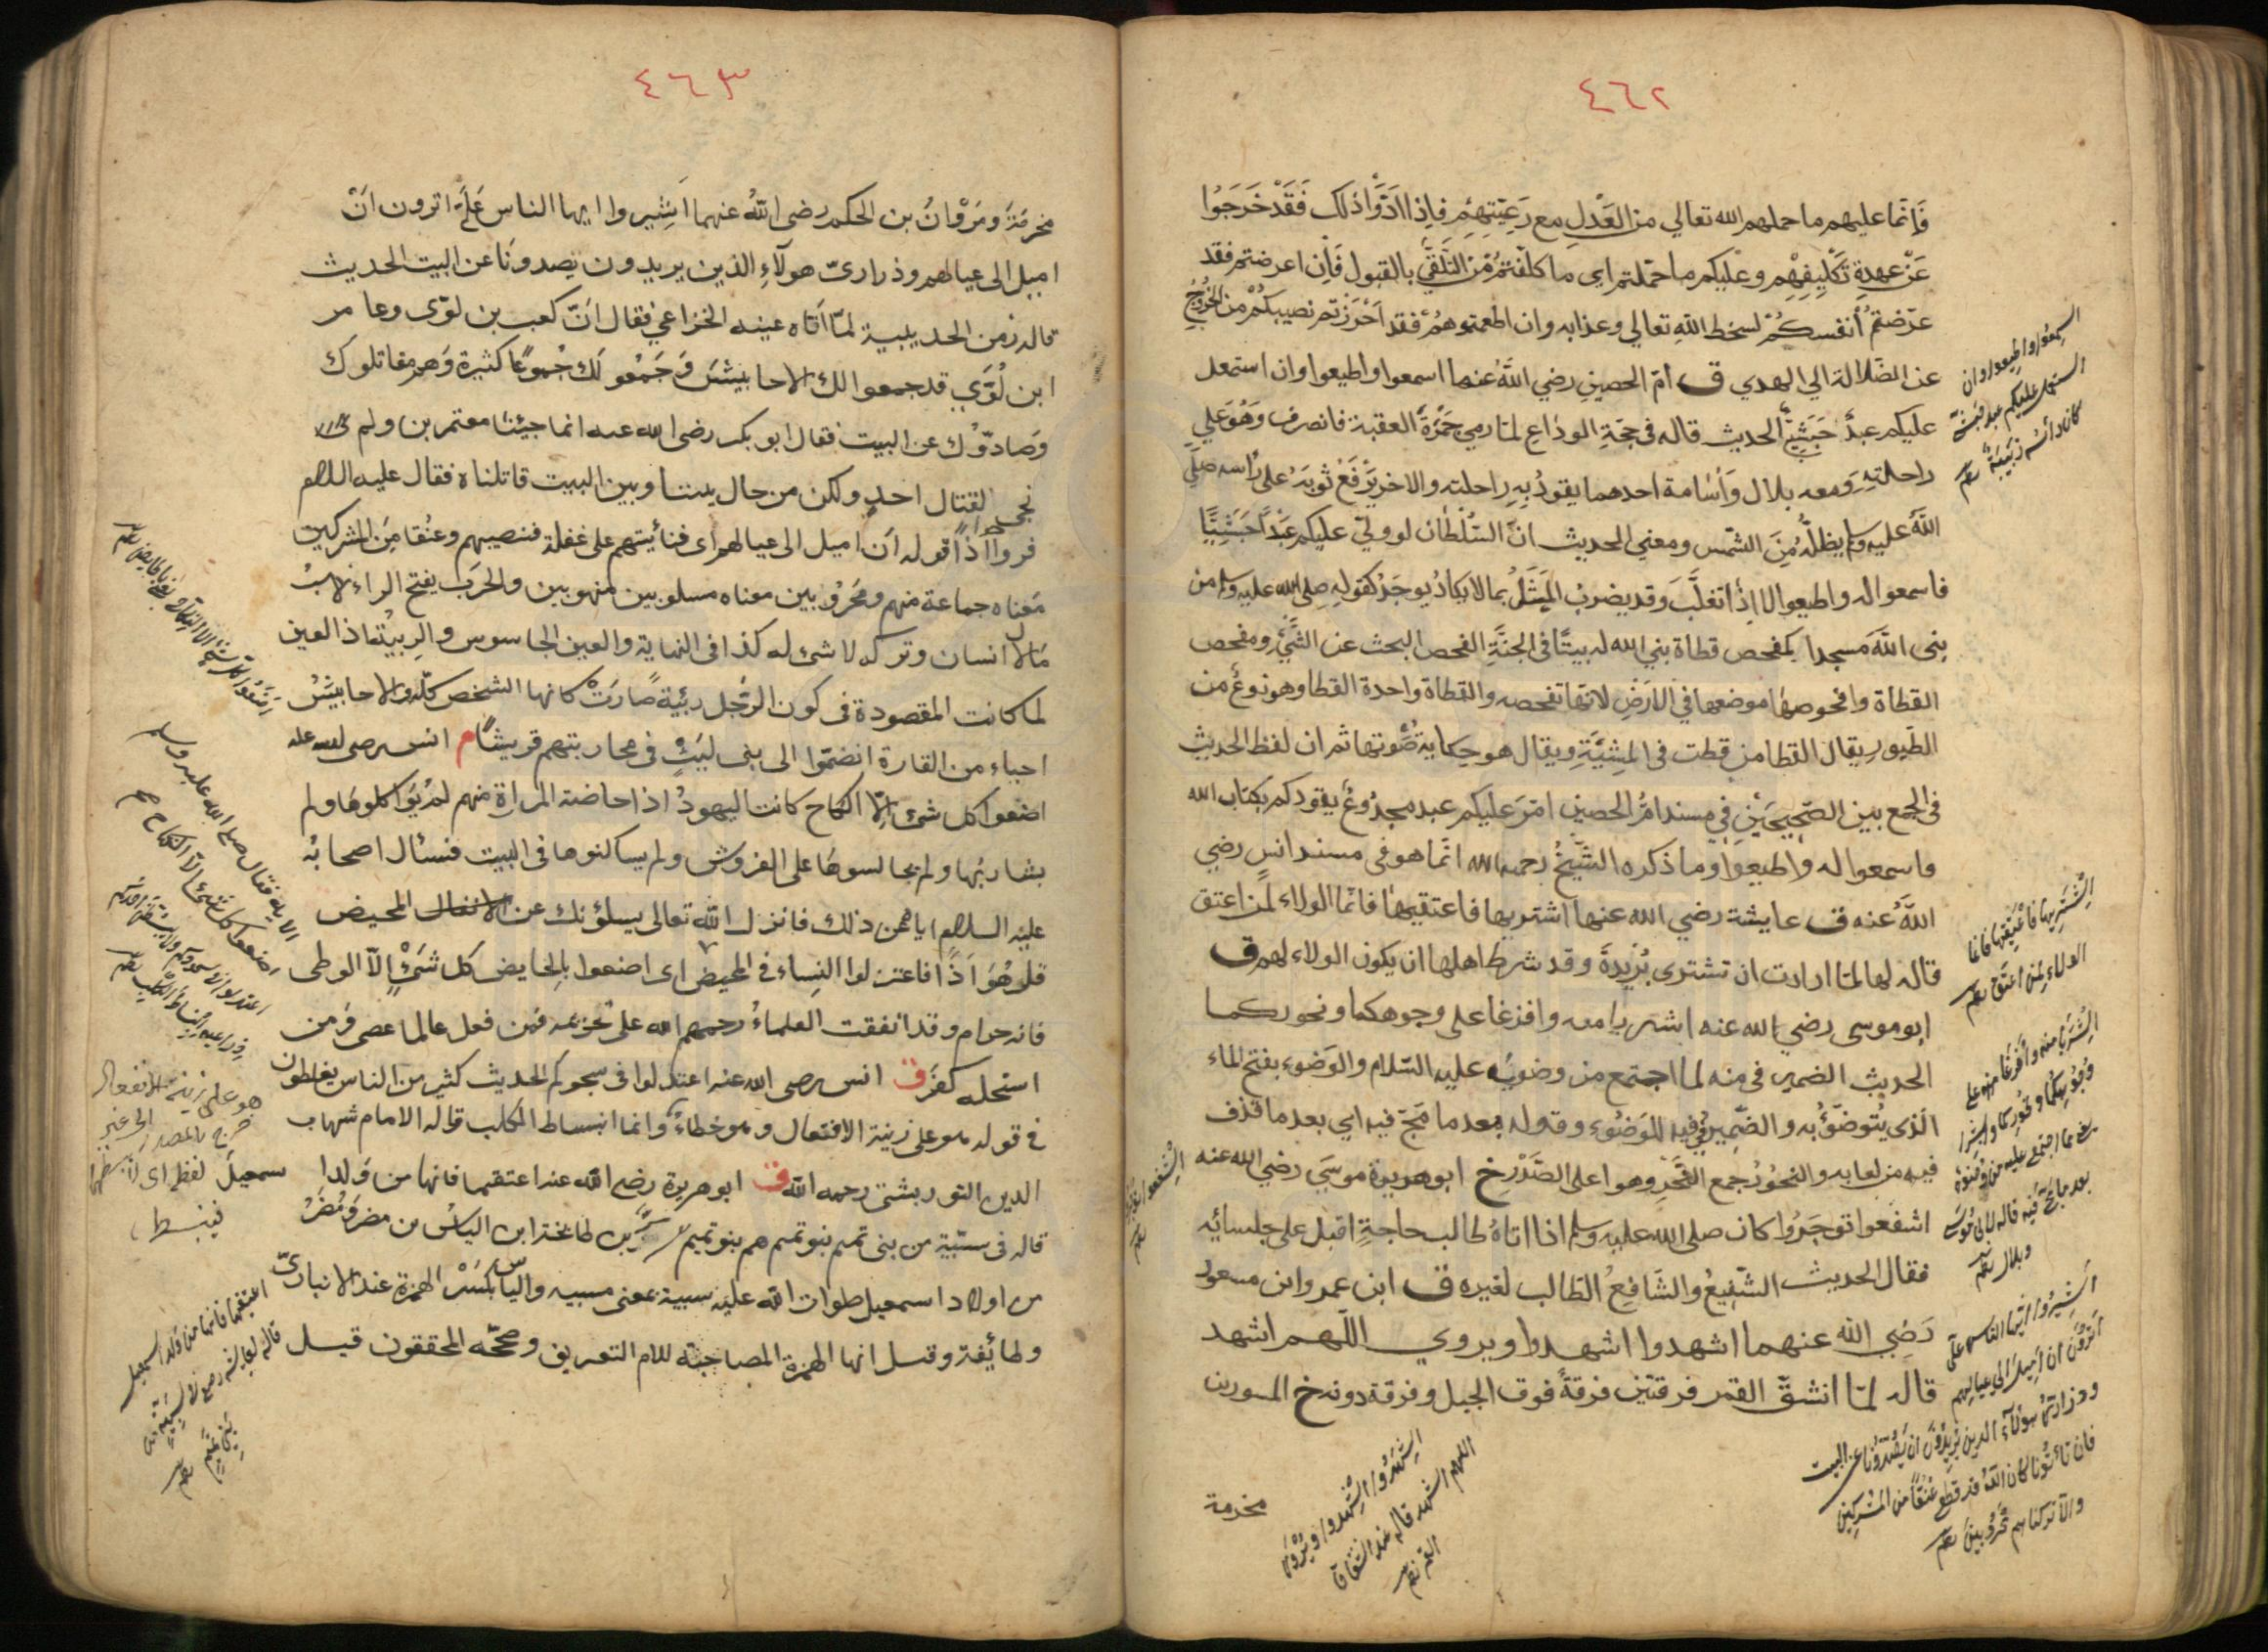 ٤٦٢
فَإنّما عليهم ما حملهم الله تعالي من العَدْلِ مع رَعِيّتِهِمْ فاِذا ادَّوَّا ذلك فَقَدْ خَرَجَوُا
عَنْ عهدةِ تَكْلِيفِهْمِ وعَليكم ما حمّلتم اى ما كلّفتمُ مِّن التَّلَقَّي بالقبول فَاِن اعرضتم فقد
عرّضتمُ أنفسكُمْ لسخط اللّهِ تعالي وعذابه وان اطعتموهُمْ فقد اَحْرَزْتم نصيبكُمْ من الخُرُوجِ
عن الضّلالة الي الهدي ق امّ الحصينِ رضي اللّهُ عنهما اسمعوا واطيعوا وان استعمل
عليكم عبدٌ حَبَشِيٌّ الحديث قاله فى حَجّةِ الوداعِ لمّا رمي جَمْرَةَ العقبة فانصرف وَهُوَ عَلي
راحلتهِ وَمعه بلال وَأسْامة احدهما يقودُ بِهِ راحلته والاخر يَرْفَعُ ثوبَهُ على رأسه صلي
اللّهُ عليه وسلم يظلّهُ مِنَ الشّمس ومعني الحديث انّ السُّلْطانَ لو ولّي عليكم عَبْداً حَبَشِيًّا
فاسمعوا له واطيعوا لا اِذا تغلَّبَ وَقد يضرب المَثَلُ بما لا يكادُ يوجَدُ كقولهِ صلى الله عليه وسلم من
بنى اللّهَ مسجدا كمفحص قطاة بني الله له بيتًا فى الجنَّةِ الفحص البحث عن الشَّيْ ومفحص
القطاة وافحوصها موضعها في الارَضِ لانّها تفحصه والقطاة واحدة القطا وهو نوعٌ من
الطّيور يقال القطا من قطت فى المِشْيَةِ ويقال هو حِكاية صَّوتها ثم ان لفظ الحديث
فى الجمع بين الصّحِيحَيْنِ فِي مسند امُّ الحصينِ امّرَ عليكم عبد مجدُوعٌ يقودكم بكتاب الله
واسمعوا له واطيعوا وما ذكره الشَّيخُ رحمه الله انّما هو فى مسند انسٍ رضي
اللّهُ عنه ق عايشة رضي الله عنها اشتريها فاعتقيها فانّما الولاء لمن اعتق
قاله لها لمّا ارادت ان تشترى بُرَيدةَ وقد شرط اهلها ان يكون الولاء لهم ق
ابو موسى رضي الله عنه اشربا منه وافرغا على وجوهكما ونحوركما
الحديث الضمير فى منه لما اجتمع من وضوئِهِ عليه السّلام والوَضوء بفتح الماء
الّذى يُتوضّؤُبه والضّمِيرُ في فيه للوَضوُء وقوله بعد ما مَجّ فيه اى بعد ما قذف
فيه من لعابه والنحوُرُ جمع النَّحْرِ وهو اعلى الصَّدْرِ خ ابو هريرة موسَى رضي الله عنه
اشفعوا توجَرُوا كان صلى الله عليه وسلم اذا اتاهُ طالب حاجةٍ اقبل على جلسائِه
فقال الحديث الشّفِيعُ والشّافِعُ الطّالب لغيره ق ابن عمر وابن مسعود
رَضِي الله عنهما اشهدوا اشهدوا ويروي اللّهم اشهد
قاله لمّا انشقّ القمر فرقتين فرقةٌ فوق الجبل وفرقة دونه خ المسوربن
مخرمة
اسمعوا واطيعوا وان
استعمل عليكم عبد حبشيّ
كان رأسه زبيبة
اشتريها فاعتقيها فانما
الولاء لمن اعتق
اشربا منه وافرغا منه على
وجوهكما ونحوركما وابشرا
يعنى مما اجتمع عليه من وضوئه
بعد ما مجّ فيه قاله لابى موسى
وبلال
اشيروا ايّها الناس علىّ
اترون ان اميل الى عيالهم
وذراريهم هؤلاء الذين يريدون ان يصدّونا عن البيت
فان يأتونا كان الله قد قطع عنقا من المشركين
والا تركناهم محروبين
اشهدوا اشهدوا ويروى
اللهم اشهد قاله عند انشقاق
القمر
٤٦٣
مخرمَةَ ومَرْوانُ بن الحكم رضى اللّهُ عنهما اَشِيروا ايها الناس عَلَىَّ اترون انْ
اميل الى عيالهم وذرارىّ هولآءِ الذين يريدون تصدونَا عن البيت الحديث
قاله زمن الحديبية لمّا اَتاه عينه الخزاعي فقال انّ كعب بن لوّى وعامر
ابن لُوَّيِ قد جمعوا لك الاحابيشَ وَجَمَعُو لَك جُموعًا كثيرة وَهم مقاتلوك
وَصادّوْك عن البيت فقال ابو بكر رضى الله عنه انما جيئنا معتمرين ولم
نجى لقتال احدٍ ولكن من حال بيننا وبين البيت قاتلناه فقال عليه السلام
فروا اذاً قوله اَن اميل الى عيالهم اى فنأيتهم على غفلة فنصيبهم وعنُقا مِن المشركين
مَعناه جماعة منهم ومَحْرُوبين معناه مسلوبين منهوبين والحَرَب بفتح الراء
مَال انسان وتركه لا شئ له كذا فى النهاية والعين الجاسوس والرِبيئة اذ العين
لما كانت المقصودة فى كون الرّجل ربيّة صَارَتْ كانها الشخص كلّه والاحابيشُ
احياء من القارة انضمّوا الى بنى ليَثٍ فى محاربتهم قريشًا م انس رضى الله عنه
اصنعوا كل شئ اِلّا النكاح كانت اليهودُ اذا حاضت المراة منهم لمْ يؤاكلوهَا ولم
يشاربُها ولم يجالسوهَا على الفروش ولم يساكنوها فى البيت فسئال اصحابُه
عليْه السلام اياه عن ذلك فانزل الله تعالى يسلؤنك عن الانفال المحيض
قل هُوَ اَذًا فاعتزلوا النِساء فى المحيض اى اصنعوا بِالحايض كل شَئٍ اِلّا الوطى
فانه حرام وقد اتفقت العلماءُ رحمهم الله على تحريمه فمن فعل عالما عصى وَمن
استحله كفرَ ق انس رضى الله عنه اعتدلوا فى سجوكم الحديث كثير من الناس يغلطون
فى قوله هو على زينة الافتعال وهو خطاءٌ وانما انبساط الكلب قاله الامام شهاب
الدين التوربشتى رحمه اللّه ق ابو هريرة رضى اللّه عنه اعتقيها فانها من وَلدا سمعيل
قاله فى سَبّية من بنى تميم بنو تميم هم بنو تميم بن طابخة ابن الياسْ بن مضر وَمُضَرُ
من اولاد اسمعيل صلوات الله عليه سبية بمعنى مسبيه والياس بكَسْر الهمزة عند الانبارىّ
وطائفة وقيل انها الهمزة المصاحبة للام التعريف وصحّه المحققون قيل
الاية فقال صلى الله عليه وسلم
اصنعوا كل شئ الا النكاح
هو على زينة الانفعال
خرج بالمصدر الى غير
لفظه اى
فينبسط
اعتقيها فانها من ولد اسمعيل
قاله لعايشة رضى
بنى تميم